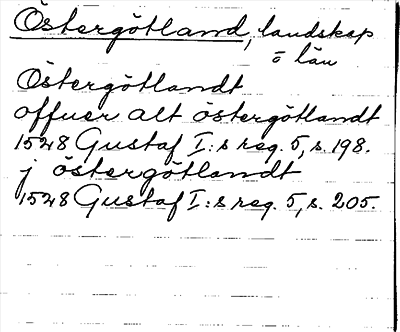 Östergötland, landskap
o län
Östergötlandt
offuer alt östergötlandt
1528 Gustaf I:s reg. 5, s. 198.
j östergötlandt
1528 Gustaf I:s reg. 5, s. 205.